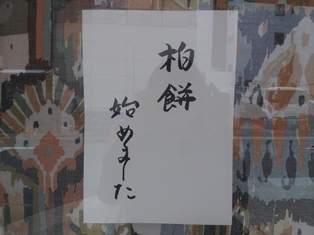 柏餅
始めました